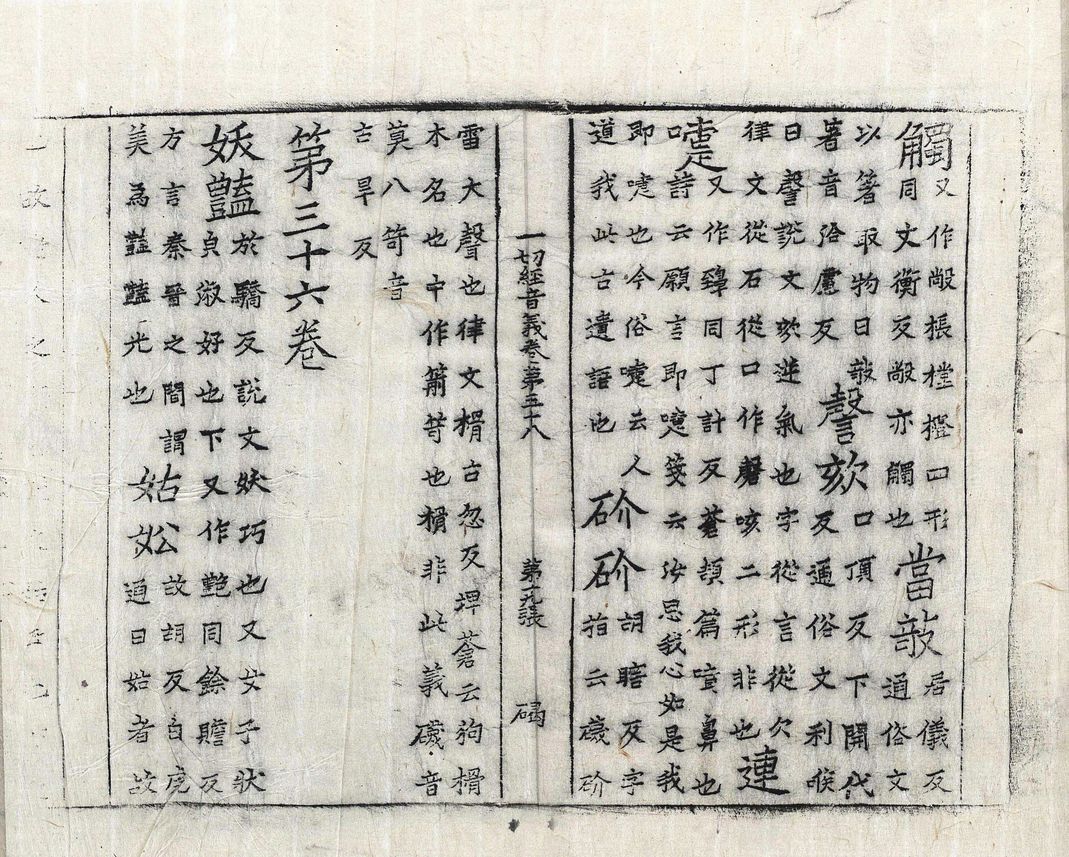 觸又作敞棖樘橙四形當攲居儀反
同丈衡反敞亦觸也通俗文
以箸取物曰攲謦欬口頂反下開代
著音治慮反反通俗文利喉
曰謦說文欬逆氣也字從言從欠連
律文從石從口作磬咳二形非也
嚏又作䶍同丁計反蒼頡篇噴鼻也
詩云願言即嚏箋云汝思我心如是我
即嚏也今俗嚏云人砎砎胡瞎反字
道我此古遺語也指云礣砎
一切經音義卷第五十八 第十九張 碣
雷大聲也律文榾古忽反埤蒼云狗榾
木名也中作箾笴也榾非此義礣音
莫八笴音
古旱反
第三十六卷
妖豔於驕反說文妖巧也又女子狀
貞淑好也下又作艶同餘贍反
方言秦晉之間謂姑妐故胡反白虎
美為豔豔光也通曰姑者故